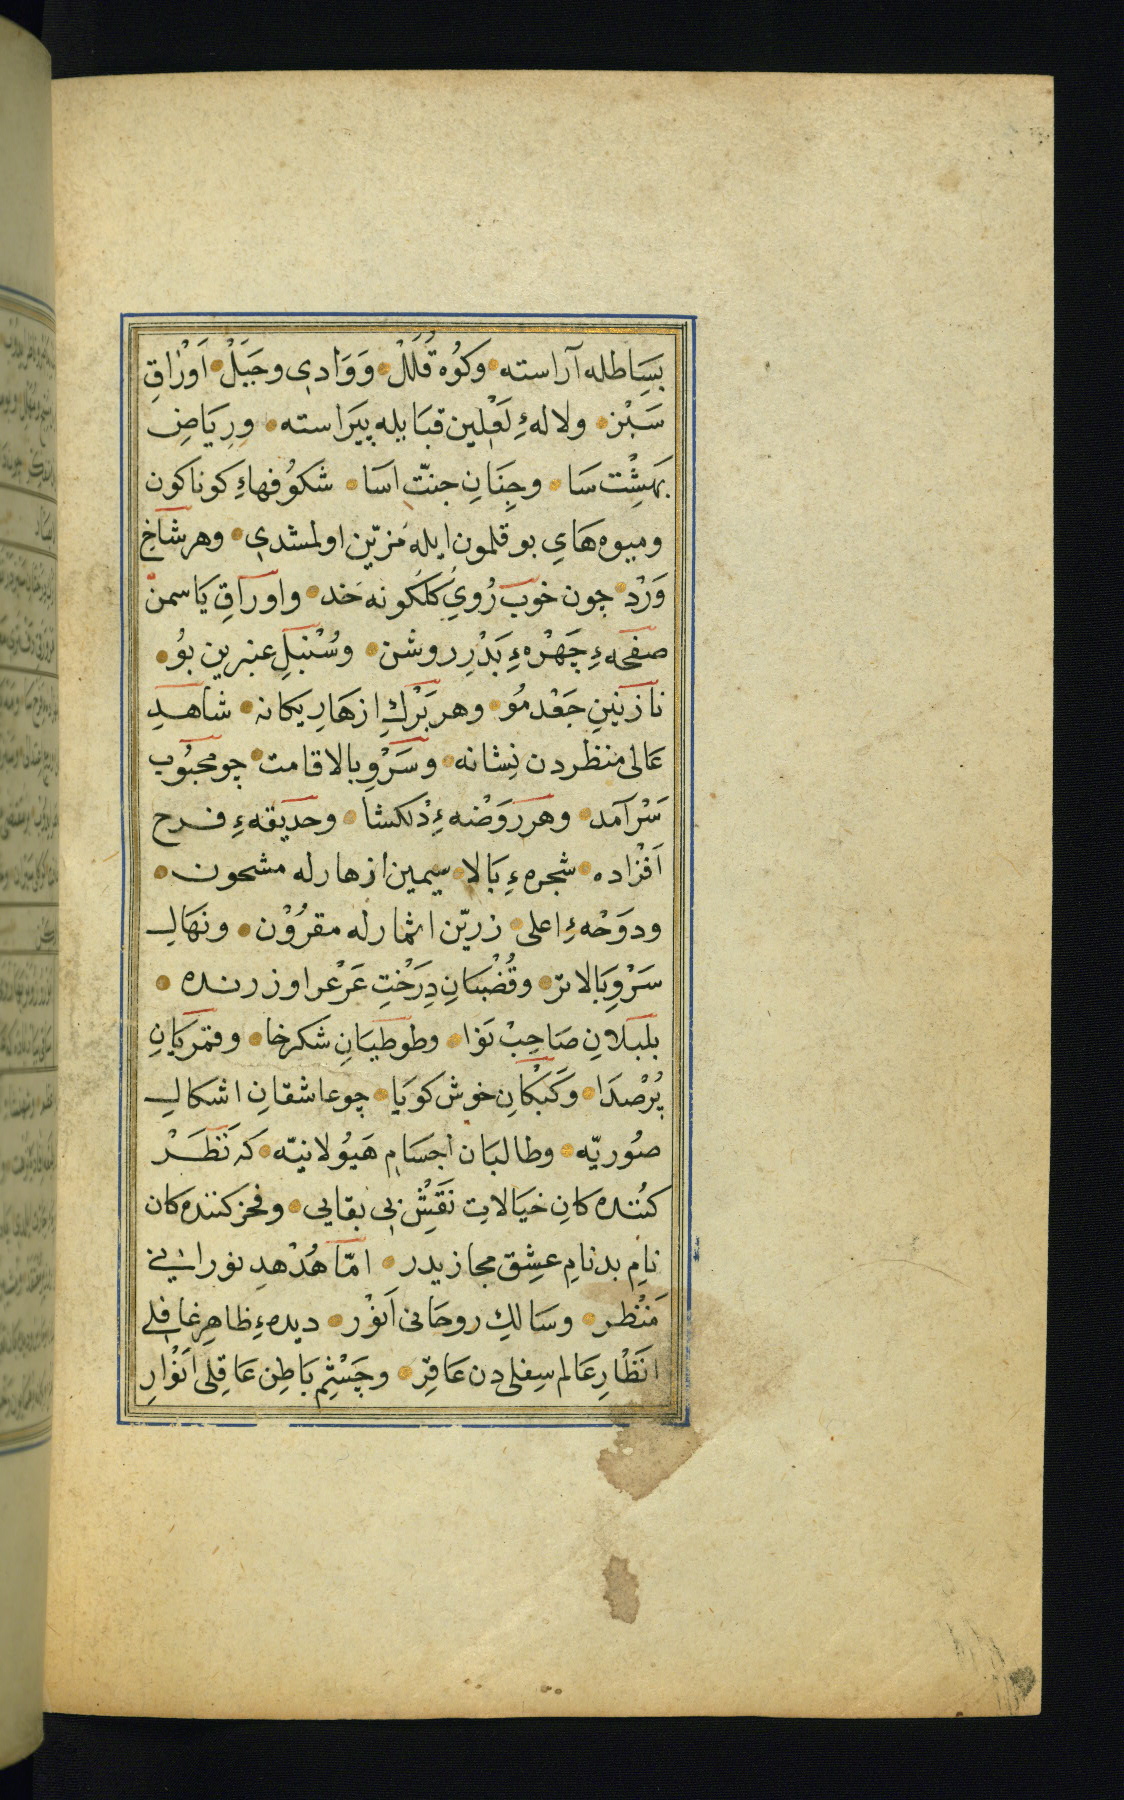 بِسَاطله آراسته وكُوه قُلَلْ وَوَادیِ وجَبَلْ اَوْرَاقِ
سَبْز ولاله‌ءِ لَعْلین قبَابیله پیَراسته ورِیَاضِ
بَهِشْت سَا وجِنَانِ جنّت اسَا شكوُفهاءِ كوناكون
ومیوه‌هَایِ بوقلمون ایله مُزیّن اولمشدیِ وهر شاخِ
وَرْدْ چون خوب رُویِ كلكونه خد واوراقِ یاسمن
صفحه‌ءِ چَهْره‌ءِ بَدْرِ روشن وسُنْبلِ عنبرین بوُ
نازنینِ جَعْد مُو وهر بَرْكِ ازهَارِ یكانه شاهدِ
عالی منظردن نِشانه وسَرْوِ بالا قامت چو محبُوب
سَرْآمد وهر رَوْضه‌ءِ دْلكشا وحدیقه‌ءِ فرح
اَفْزاده شجره‌ءِ بَالا سیمین ازهارله مشحون
ودوَحْه‌ءِ اعلی زریّن اثمارله مقروُن ونهَالِ
سَرْوِ بَالاتر وقُضْبَانِ دِرَخْتِ عَرْعر اوزرنده
بلبَلانِ صَاحِبْ نَوَا وطوطیَانِ شكرخا وقمریَانِ
پُرْصدَا وكَبَكَانِ خوش كویَا چو عاشقانِ اشكالِ
صُوریّه وطالبَان اجسَامِ هَیُولانیّه كه نَظَرْ
كنُنده كانِ خیَالاتِ نَقِشْ بی بقایی وفخر كننده كان
نامِ بدنامِ عشِق مجازیدر امّا هُدْهدِ نورانی
مَنْظر وسَالكِ روحَانی اَنوْر دیده‌ءِ ظاهرِ غافلی
انَظْارِ عَالم سِفلی دن عَاقِر وچَشْمِ بَاطِن عَاقِلی انَوْارِ